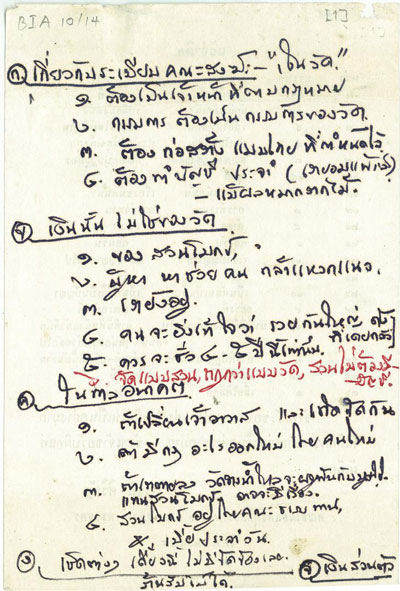 BIA 10/14
[1]
ก. เกี่ยวกับระเบียบคณะสงฆ์:– "เงินวัด."
๑. ต้องเป็นเจ้าหน้าที่ตามกฎหมาย
๒. กรรมการ ต้องเป็นกรรมการของวัด.
๓. ต้อง ก่อสร้าง แบบไทย ที่กำหนดไว้
๔. ต้อง ทำบัญชี ประจำ
– แม้ผลหมากรากไม้.
ข. เงินนั้น ไม่ใช่ของวัด
๑. ของ สวนโมกข์,
๒. ปัญหา หาช่วยคน กล้าแหวกแนว.
๓. เรายังอยู่.
๔. คนจะยิ่งเข้าใจว่า รวยกันใหญ่ ดัง
ที่เคยกลัว
๕. ควรจะชั่ว ๔ – ๕ ปี นี้เท่านั้น.
จัดแบบสวน, ถูกว่าแบบวัด, สวนไม่ต้องมี
บัญชี.
ค. ในทางอนาคต
๑. ถ้าเปลี่ยนเจ้าอาวาส และเกิดขัดกัน
๒. ถ้ามีกฎอะไรออกใหม่ โดยคนใหม่
๓. ถ้าเราตายลง
แทนสวนโมกข์ อาจจะมีเรื่อง.
๔. สวนโมกข์ อยู่โดยคณะธรรมทาน,
เบี้ยประจำวัน.
ง. เชิดต่างๆ เดี๋ยวนี้ ไม่มีขัดข้องเลย.
ร้านรับไม่ได้.
จ. เงินส่วนตัว